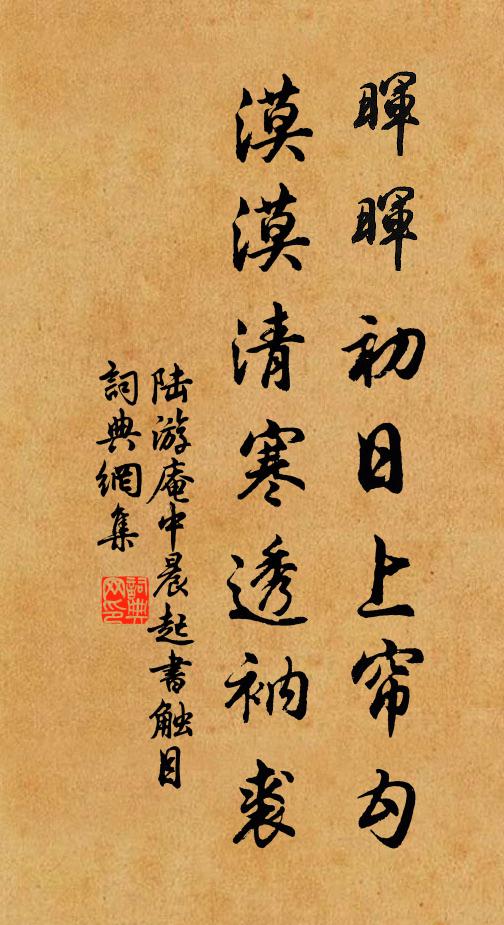 暉暉初日上帘勾
漠漠清寒透衲裘
陆游庵中晨起書触目
詞典網集
詞典网印